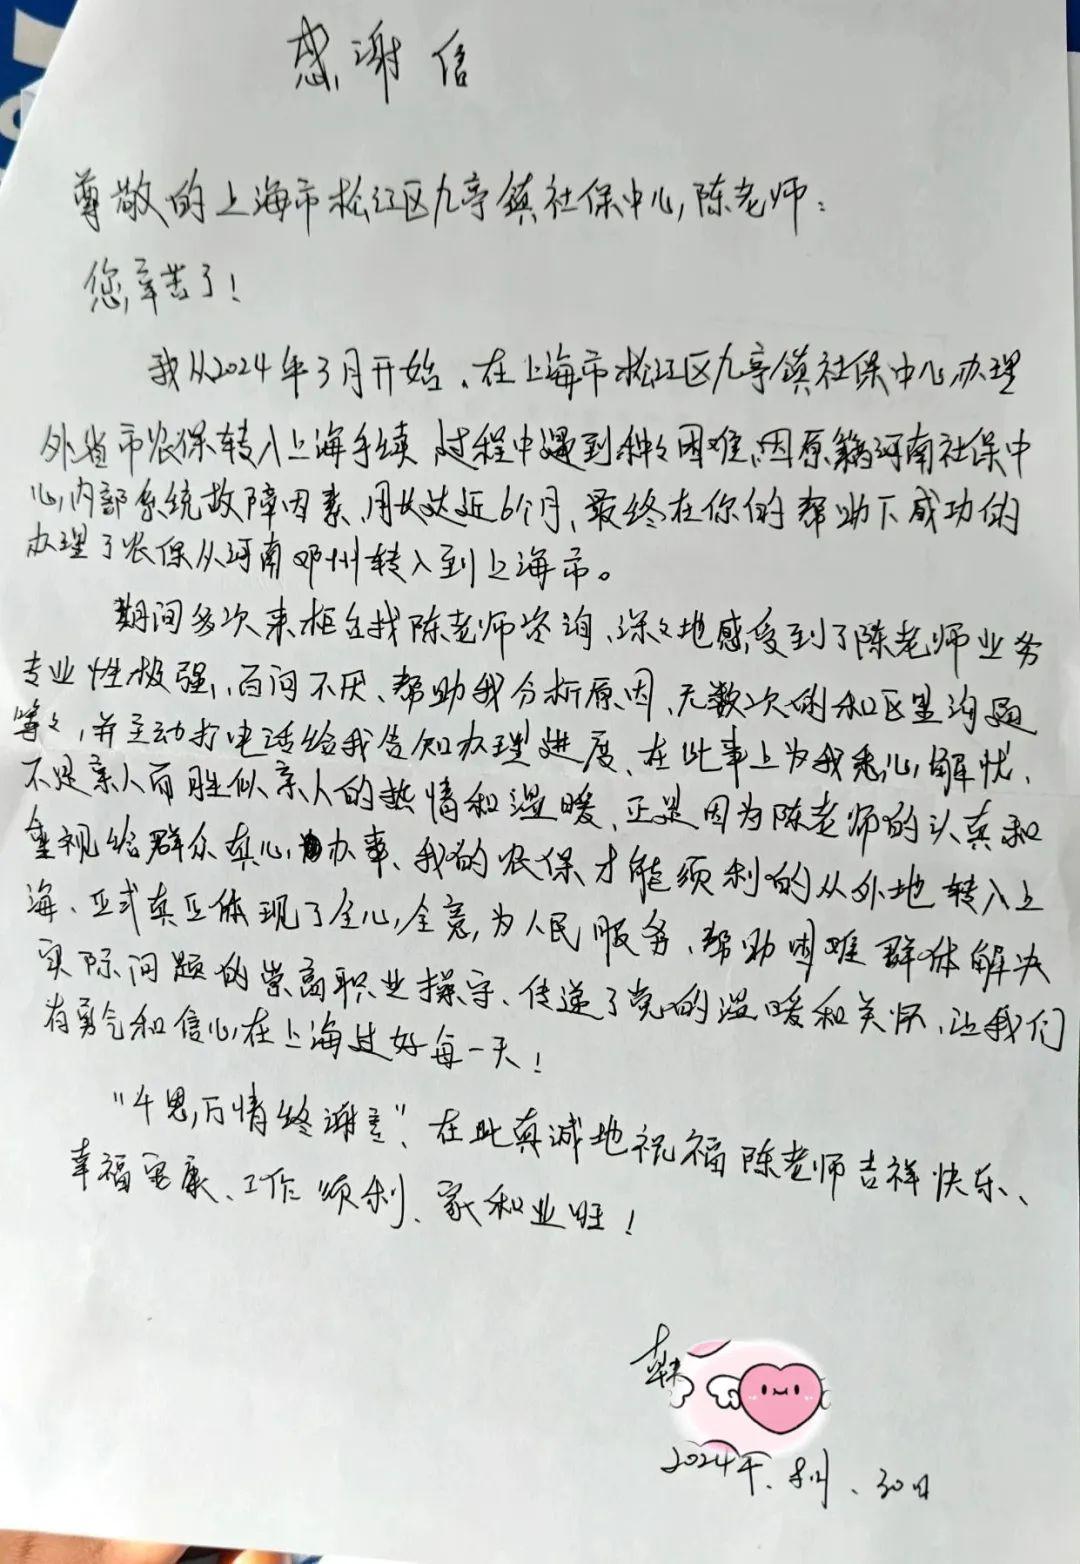 感谢信
尊敬的上海市松江区九亭镇社保中心,陈老师:
您辛苦了!
我从2024年3月开始、在上海市松江区九亭镇社保中心办理
外省市农保转入上海手续 过程中遇到种々困难、因原籍河南社保中
心内部系统故障因素、用长达近6个月、最终在你的帮助下成功的
办理了农保从河南邓州转入到上海市。
期间多次来柜台找陈老师咨询、深々地感受到了陈老师业务
专业性极强、百问不厌、帮助我分析原因、无数次的和区里沟通
等々,并主动打电话给我告知办理进度、在此事上为我悉心解忧、
不是亲人而胜似亲人的热情和温暖、正是因为陈老师的认真和
重视给群众真心办事、我的农保才能须利的从外地转入上
海、正式真正体现了全心全意,为人民服务、帮助困难群体解决
实际问题的崇高职业操守、传递了党的温暖和关怀、让我们
有勇气和信心在上海过好每一天!
"千恩万情终谢意"、在此真诚地祝福陈老师吉祥快乐、
幸福安康、工作须利、家和业旺!
韩
2024年、8月、30日